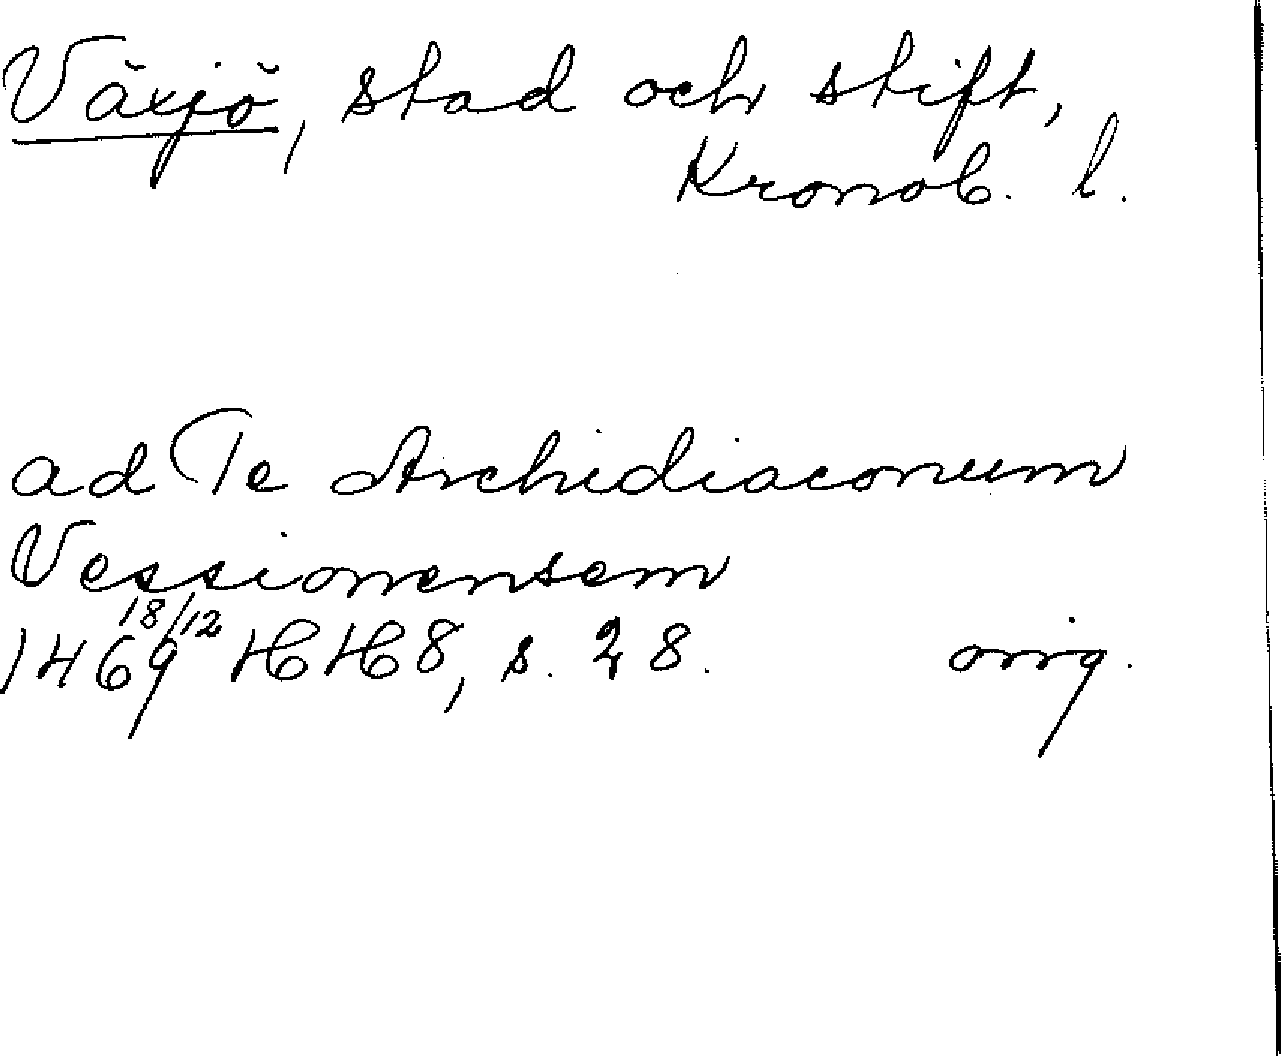 Växjö, stad och stift,
Kronob. l.
ad Te Archidiaconum
Vessionensem
18/12
1469 HH 8, s. 28. orig.